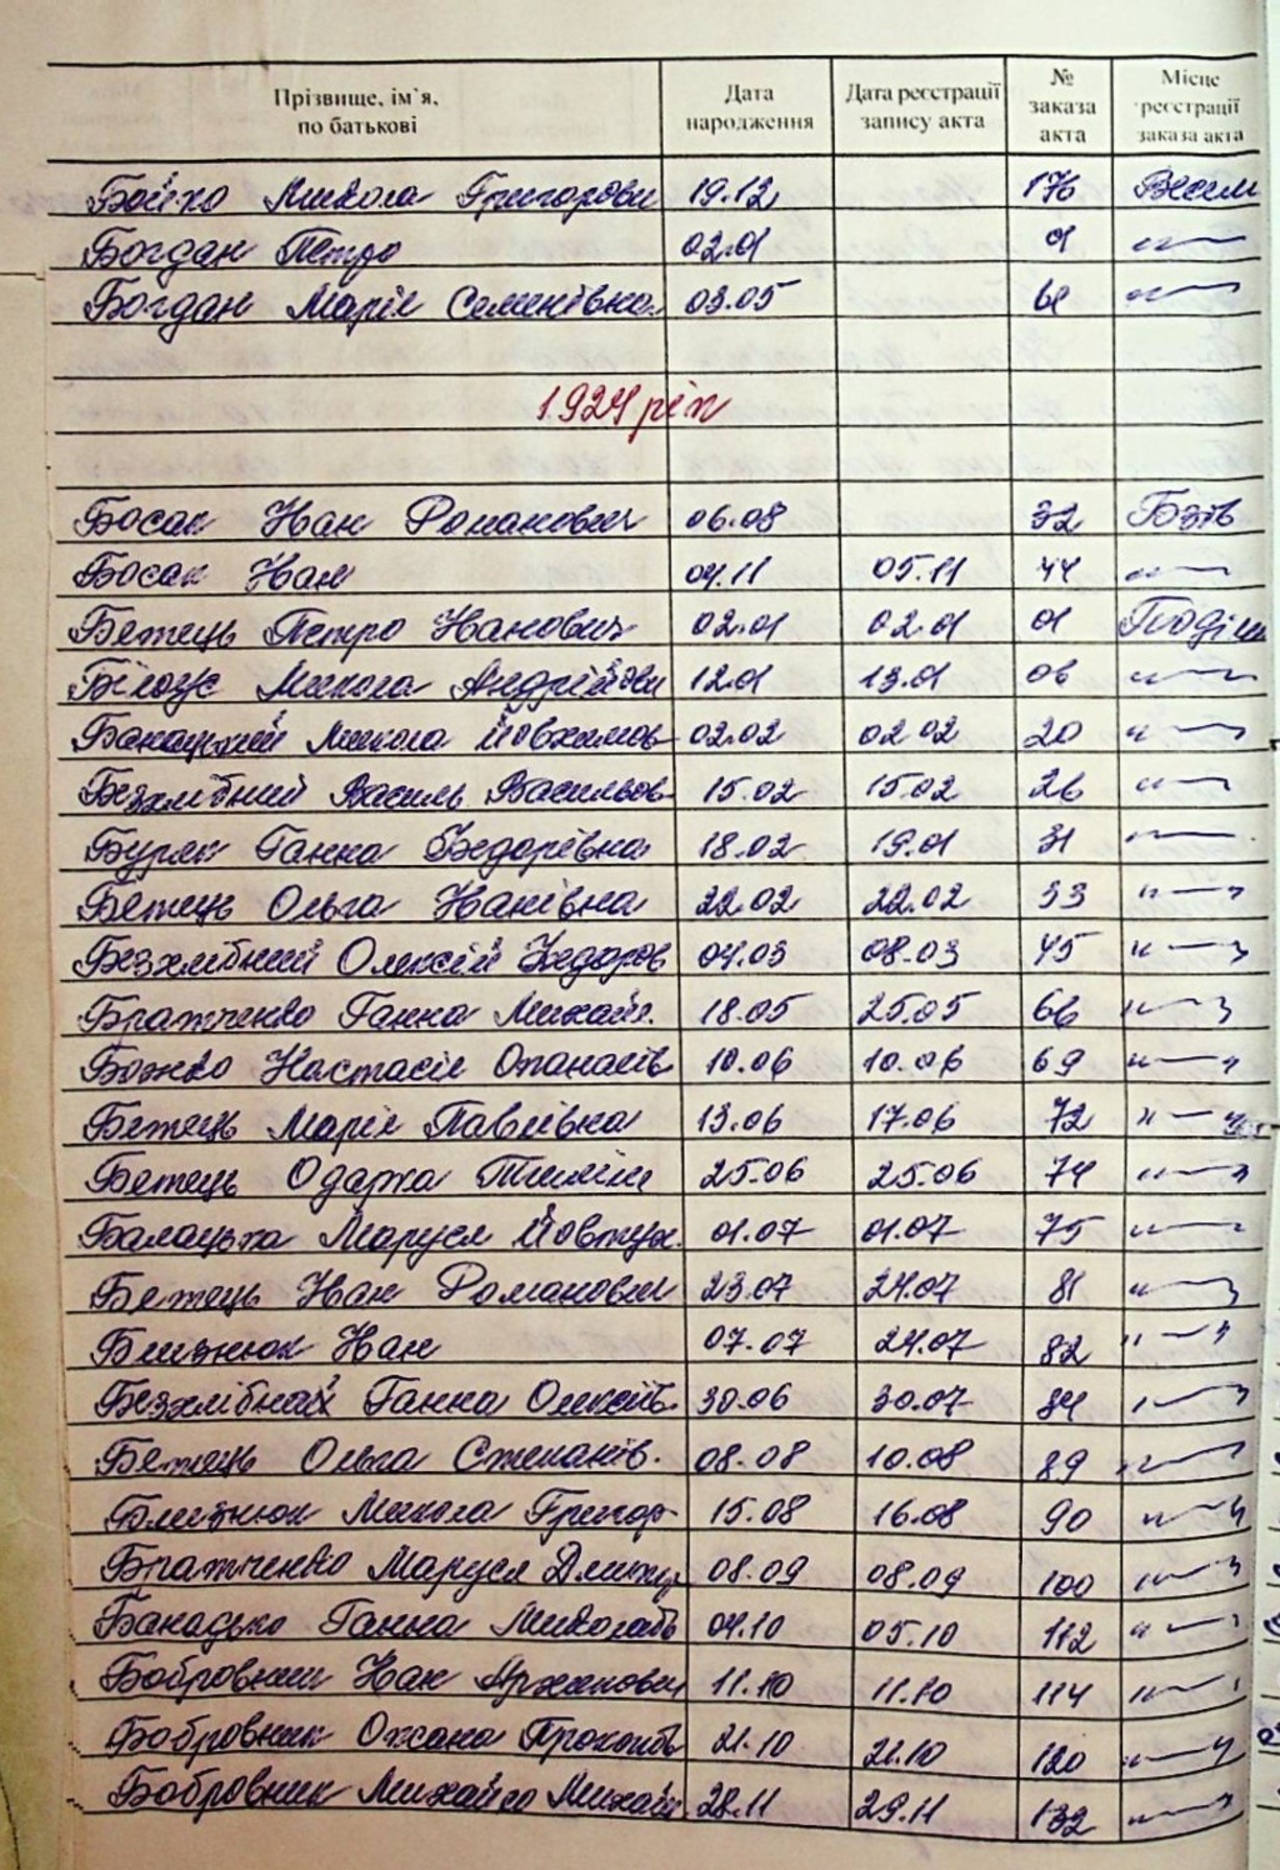 Прізвище, ім`я, по батькові Дата народження Дата реєстрації запису акта № заказа акта Місце реєстрації заказа акта
Бойко Микола Григорови 19.12 176 Весели
Богдан Петро 02.01 01 -"-
Богдан Марія Семенівна 03.05 61 -"-
1924 рік
Босак Іван Романович 06.08 32 Бзів
Босак Іван 04.11 05.11 44 -"-
Бетець Петро Іванович 02.01 02.01 01
Білоус Микола Андрійови 12.01 13.01 06 -"-
Микола 02.02 02.02 20 -"-
Безхлібний Василь Васильов 15.02 15.02 26 -"-
Буряк Ганна Федорівна 18.02 19.01 31 -"-
Бетець Ольга Іванівна 22.02 22.02 33 -"-
Безхлібний Олексій Федоров 04.03 08.03 45 -"-
Братченко Ганна Михайл. 18.05 25.05 66 -"-
Божко Настасія Опанасів 10.06 10.06 69 -"-
Бетець Марія Павлівна 13.06 17.06 72 -"-
Бетець Одарка 25.06 25.06 74 -"-
Балацька Маруся Йовтух. 01.07 01.07 75 -"-
Бетець Іван Романович 23.07 24.07 81 -"-
Близнюк Іван 07.07 24.07 82 -"-
Безхлібная Ганна Олексіїв. 30.06 30.07 84 -"-
Бетець Ольга Степанів. 08.08 10.08 89 -"-
Близнюк Микола Григор 15.08 16.08 90 -"-
Братченко Маруся Дмитр 08.09 08.09 100 -"-
Ганна Миколаїв 04.10 05.10 112 -"-
Бобровник Іван 11.10 11.10 114 -"-
Бобровник Оксана Прокопів 21.10 21.10 120 -"-
Бобровник Михайло Михайл. 28.11 29.11 132 -"-